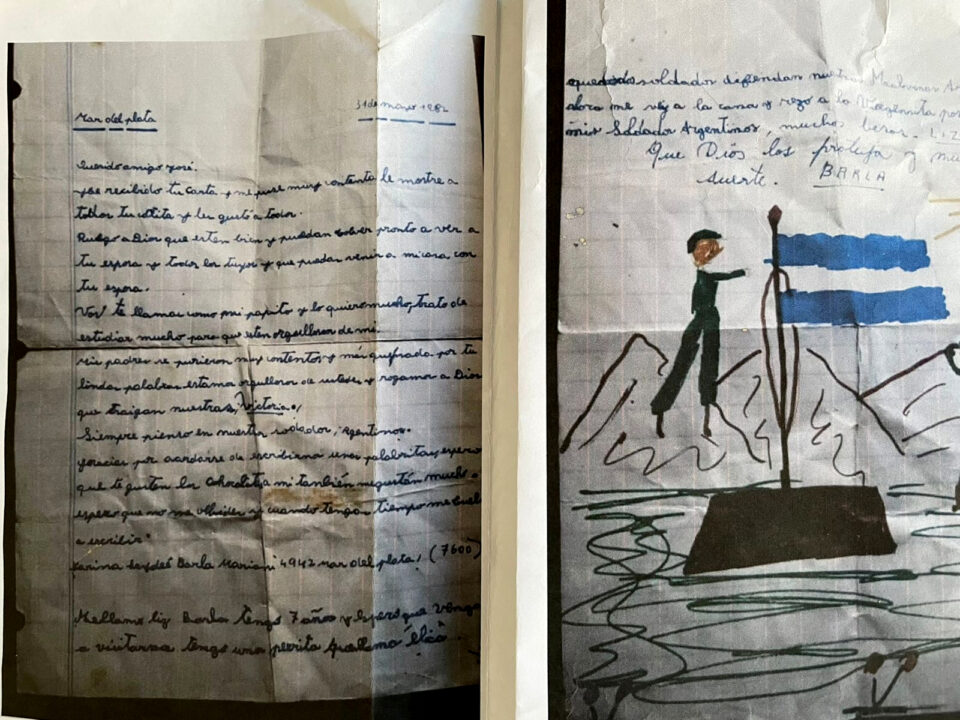 Mar del plata
31 de marzo 1982
Querido amigo José.
He recibido tu Carta y me puse muy contenta le mostre a
todos tu cartita y les gustó a todos.
Ruego a Dios que esten bien y puedan bolver pronto a ver a
tu esposa y todos los tuyos y que puedas venir a mi casa con
tu esposa.
Vos te llamas como mi papito y lo quiero mucho, trato de
estudiar mucho para que esten orgullosos de mi.
Mis padres se pusieron muy contentos y más por tu
linda palabras estamos orgullosos de ustedes y rogamos a Dios
que traigan nuestras, Victoria.
Siempre pienso en nuestro soldados, Argentinos.
gracias por acordarse de escribirme unas palabritas y espero
que te gusten los Chocolates a mi también me gustán mucho
espero que no me olvides y cuando tengas tiempo me
a escribir.
Karina Barla Mariani 4942 mar del plata! (7600)
Me llamo liz Barla tengo 7 años y espero que venga
a visitarnos tengo una perrita que llama
soldados defiendan nuestras Maalvinas
ahora me voy a la cama y rezo a la Virgencita por
mis Soldados Argentinos, muchos besos. LIZ
Que Dios los proteja y
suerte. BARLA